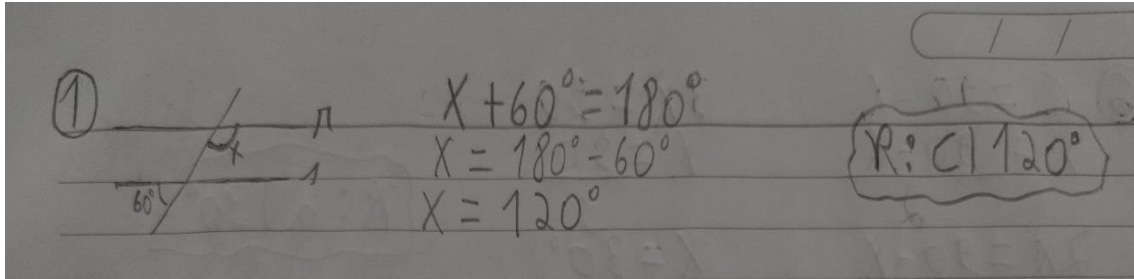 1
r
x
s
60°
X + 60° = 180°
X = 180° - 60°
X = 120°
R: C) 120°